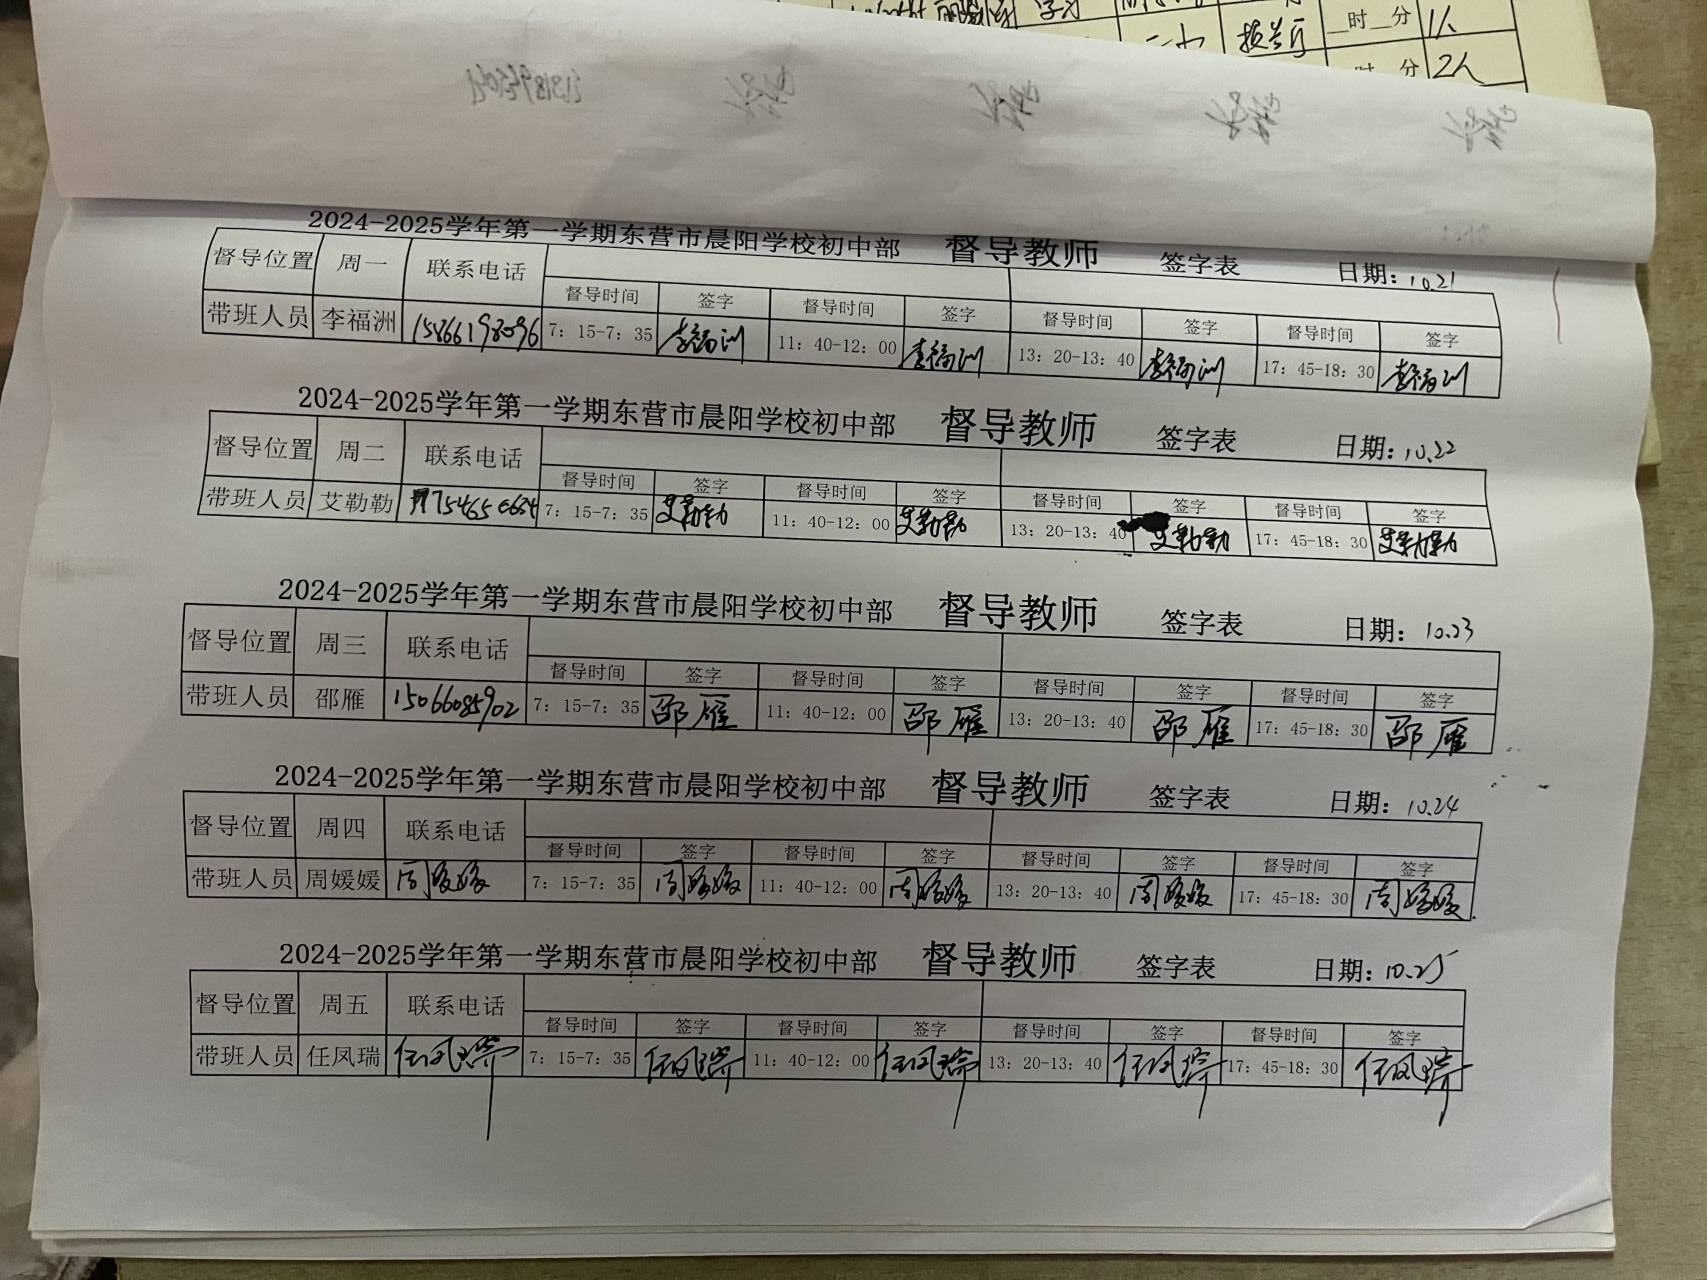 时 分 1人
时 分 2人
2024-2025学年第一学期东营市晨阳学校初中部 督导教师 签字表 日期: 10.21
督导位置 周一 联系电话
督导时间 签字 督导时间 签字 督导时间 签字 督导时间 签字
带班人员 李福洲 15866198096 7: 15-7: 35 李福洲 11: 40-12: 00 李福洲 13: 20-13: 40 李福洲 17: 45-18: 30 李福洲
2024-2025学年第一学期东营市晨阳学校初中部 督导教师 签字表 日期: 10.22
督导位置 周二 联系电话
督导时间 签字 督导时间 签字 督导时间 签字 督导时间 签字
带班人员 艾勒勒 7: 15-7: 35 艾勒勒 11: 40-12: 00 艾勒勒 13: 20-13: 40 艾勒勒 17: 45-18: 30 艾勒勒
2024-2025学年第一学期东营市晨阳学校初中部 督导教师 签字表 日期: 10.23
督导位置 周三 联系电话
督导时间 签字 督导时间 签字 督导时间 签字 督导时间 签字
带班人员 邵雁 15066085902 7: 15-7: 35 邵雁 11: 40-12: 00 邵雁 13: 20-13: 40 邵雁 17: 45-18: 30 邵雁
2024-2025学年第一学期东营市晨阳学校初中部 督导教师 签字表 日期: 10.24
督导位置 周四 联系电话
督导时间 签字 督导时间 签字 督导时间 签字 督导时间 签字
带班人员 周媛媛 周媛媛 7: 15-7: 35 周媛媛 11: 40-12: 00 周媛媛 13: 20-13: 40 周媛媛 17: 45-18: 30 周媛媛
2024-2025学年第一学期东营市晨阳学校初中部 督导教师 签字表 日期: 10.25
督导位置 周五 联系电话
督导时间 签字 督导时间 签字 督导时间 签字 督导时间 签字
带班人员 任凤瑞 任凤瑞 7: 15-7: 35 任凤瑞 11: 40-12: 00 任凤瑞 13: 20-13: 40 任凤瑞 17: 45-18: 30 任凤瑞